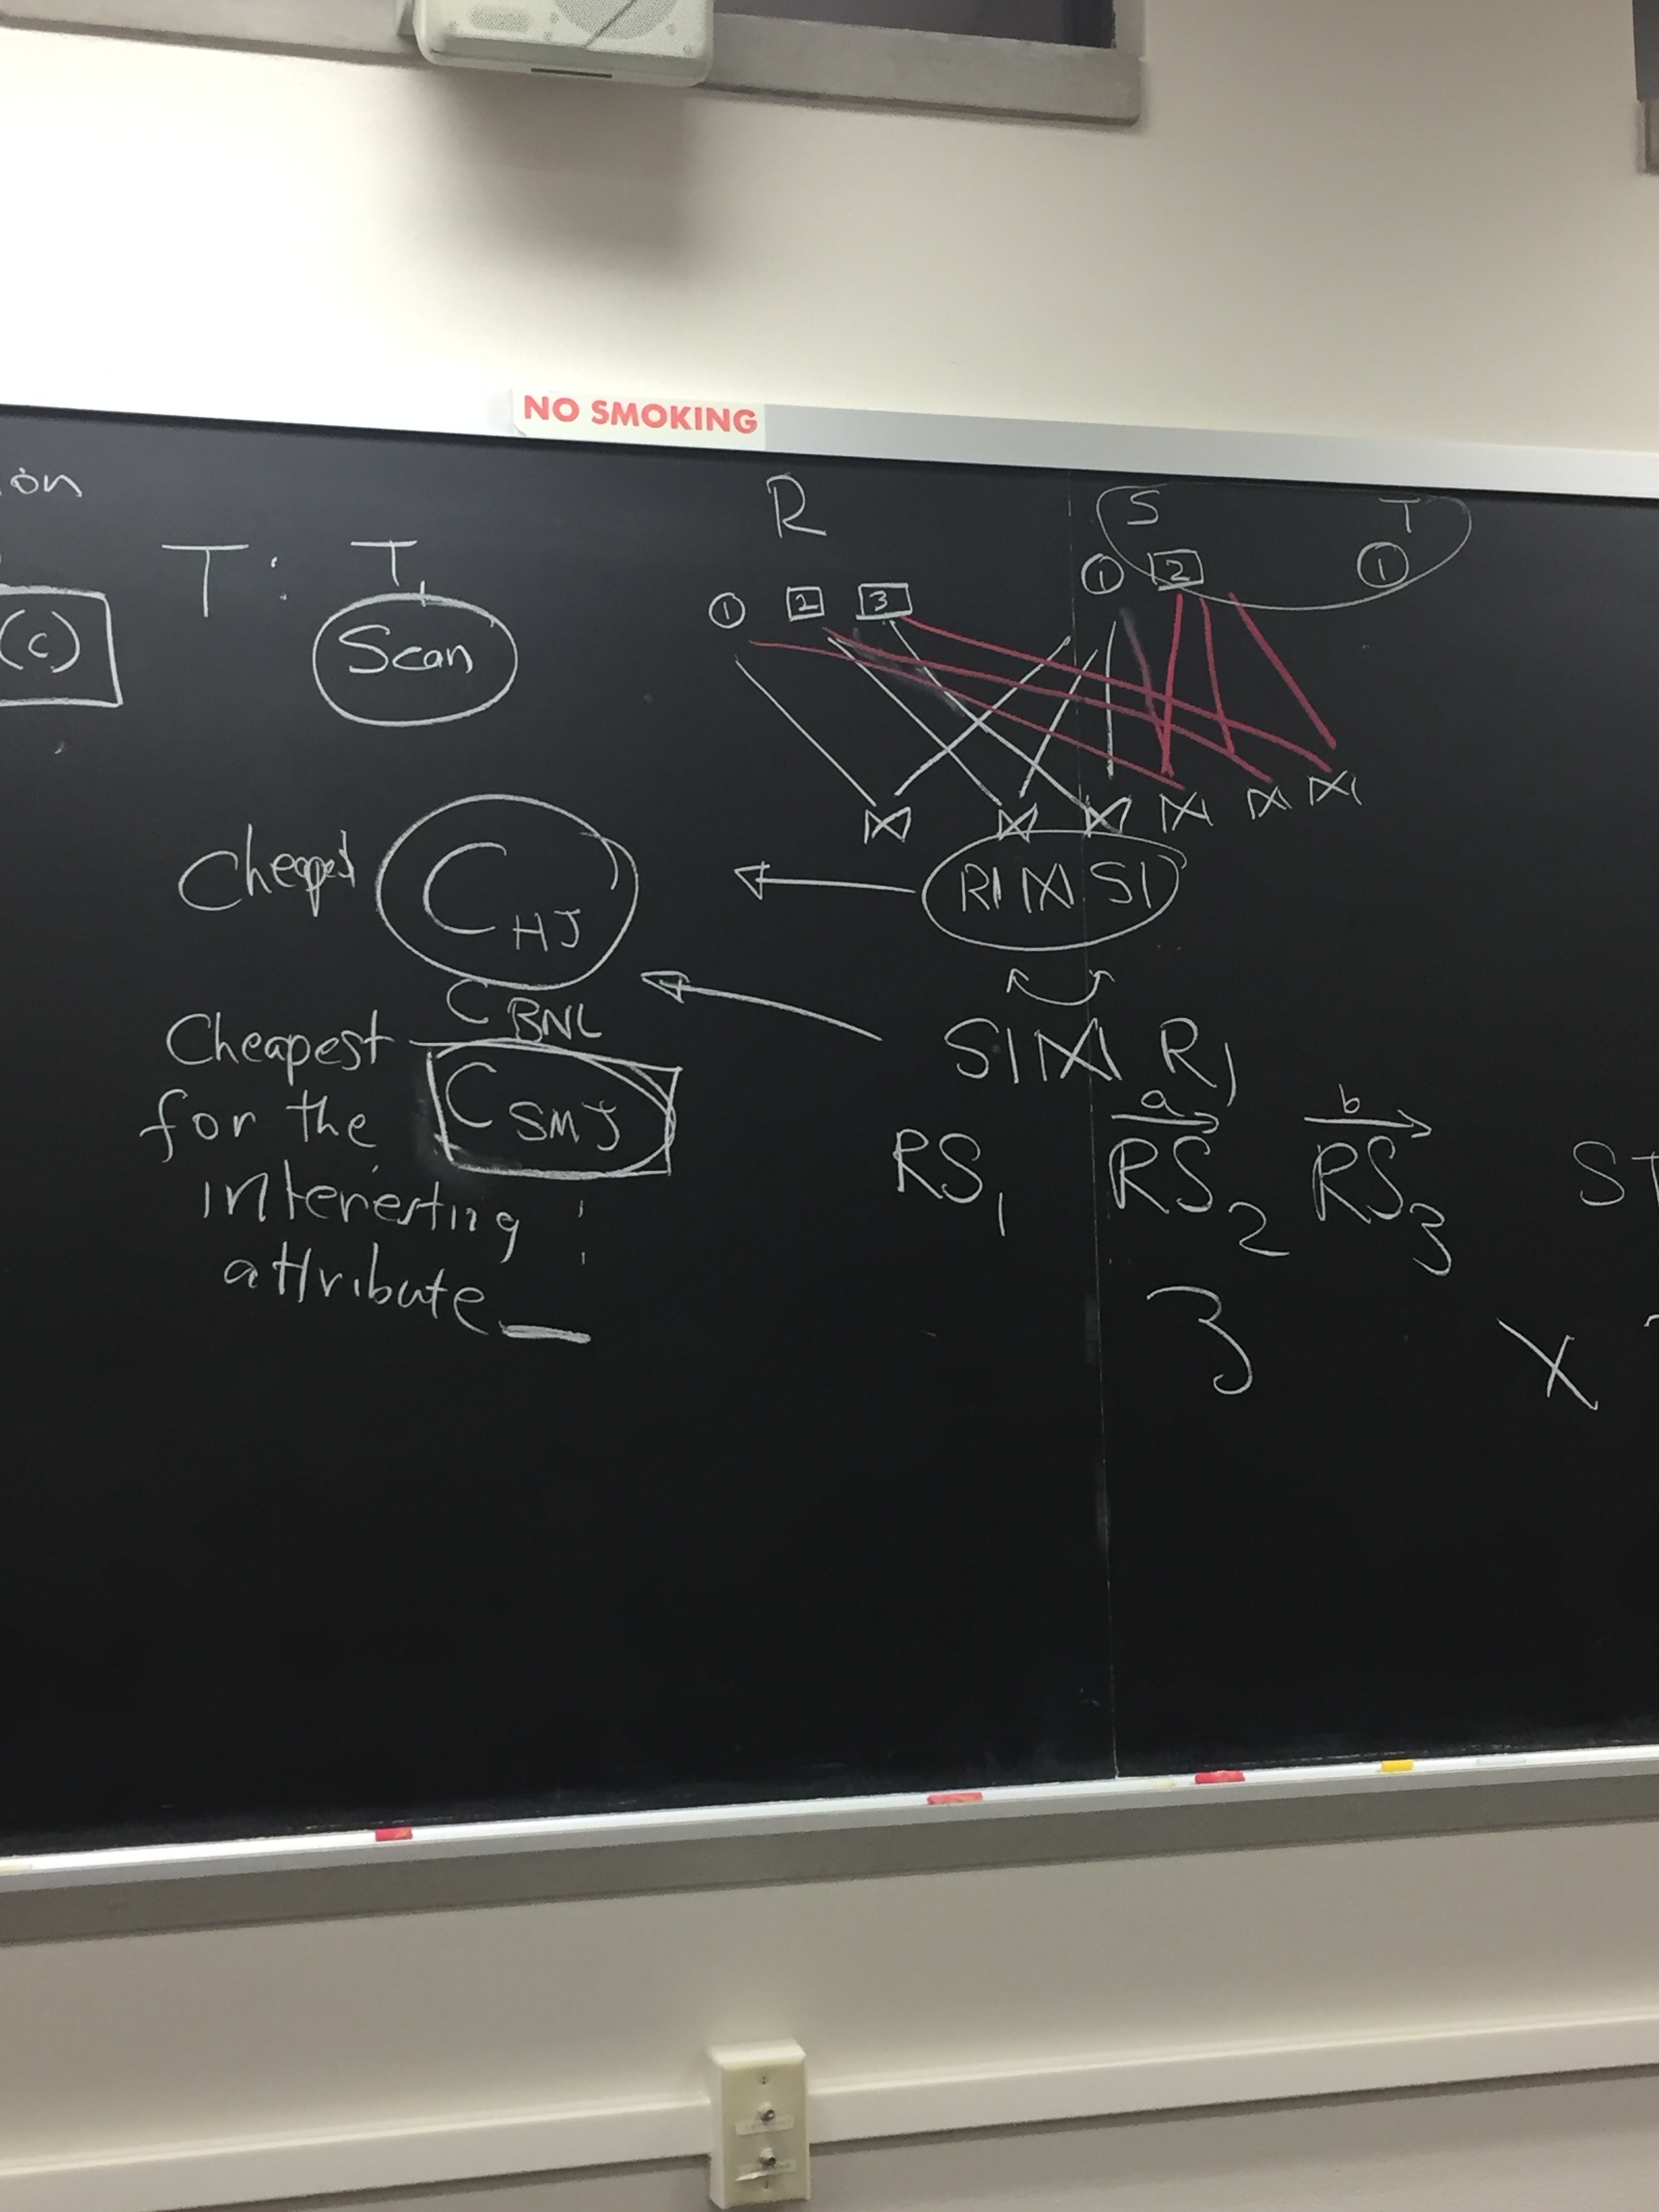 NO SMOKING
ion
(c)
T: T1
Scan
R
① 2 3
S T
① 2 ①
⋈ ⋈ ⋈ ⋈ ⋈ ⋈
R1 ⋈ S1
Cheapest C HJ
C BNL
S1 ⋈ R1
Cheapest
for the
interesting
attribute
C SMJ
a b
RS1 RS2 RS3 ST
3 X